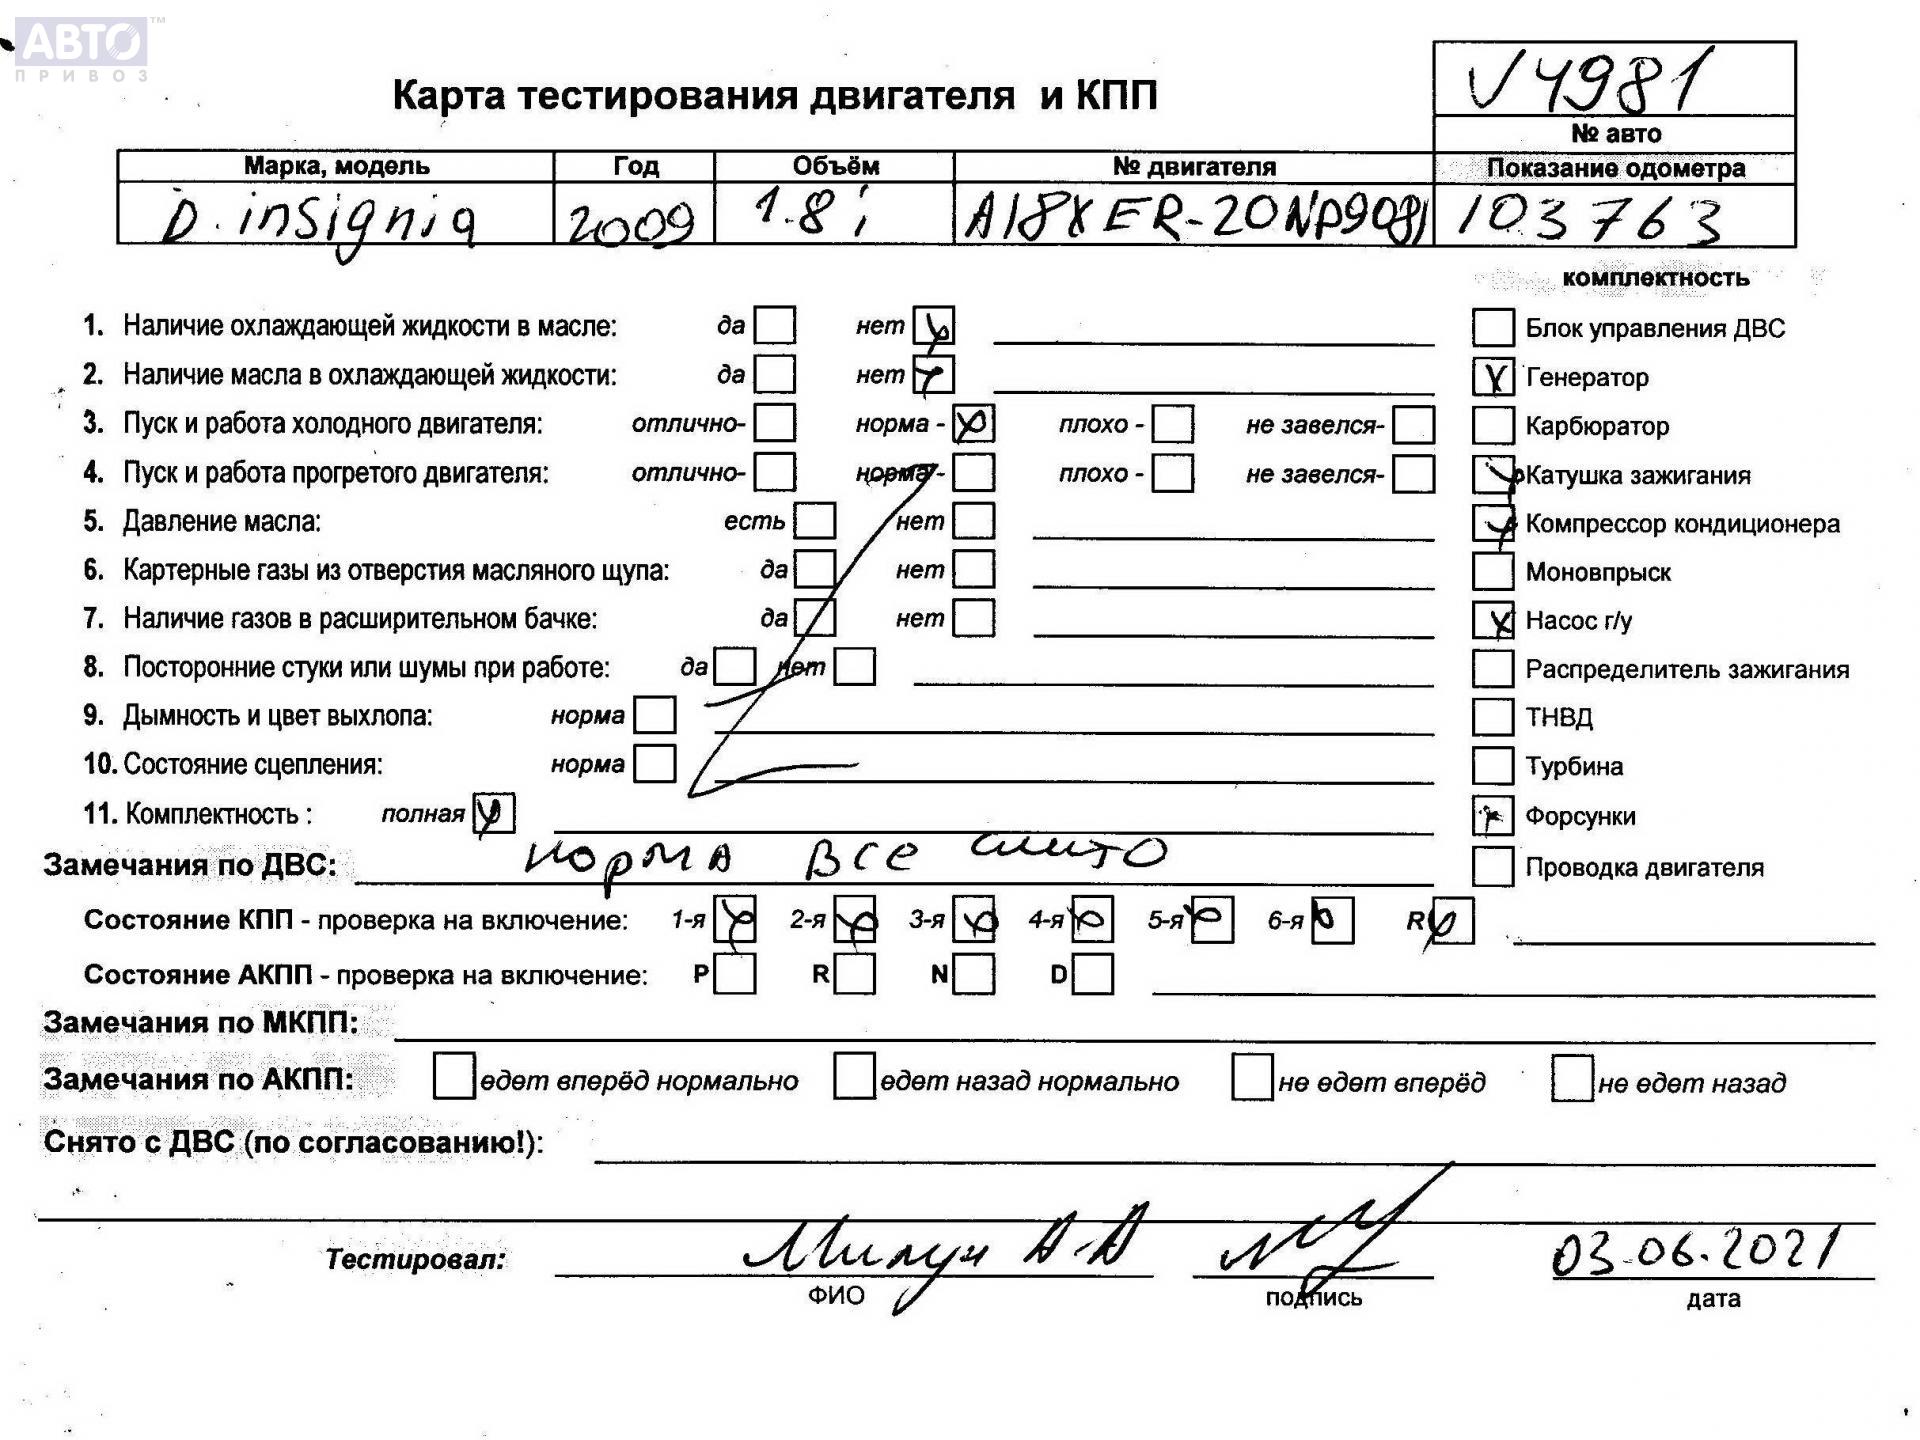 АВТО™
ПРИВОЗ
V4981
Карта тестирования двигателя и КПП
№ авто
Марка, модель Год Объём № двигателя Показание одометра
D. insignia 2009 1.8i A18XER-20NP9081 103763
комплектность
1. Наличие охлаждающей жидкости в масле: да нет Блок управления ДВС
2. Наличие масла в охлаждающей жидкости: да нет Генератор
3. Пуск и работа холодного двигателя: отлично- норма - плохо - не завелся- Карбюратор
4. Пуск и работа прогретого двигателя: отлично- норма - плохо - не завелся- Катушка зажигания
5. Давление масла: есть нет Компрессор кондиционера
6. Картерные газы из отверстия масляного щупа: да нет Моновпрыск
7. Наличие газов в расширительном бачке: да нет Насос г/у
8. Посторонние стуки или шумы при работе: да нет Распределитель зажигания
9. Дымность и цвет выхлопа: норма ТНВД
10. Состояние сцепления: норма Турбина
11. Комплектность : полная Форсунки
Замечания по ДВС: норма все слито Проводка двигателя
Состояние КПП - проверка на включение: 1-я 2-я 3-я 4-я 5-я 6-я R
Состояние АКПП - проверка на включение: P R N D
Замечания по МКПП:
Замечания по АКПП: едет вперёд нормально едет назад нормально не едет вперёд не едет назад
Снято с ДВС (по согласованию!):
Тестировал: А.А 03.06.2021
ФИО подпись дата